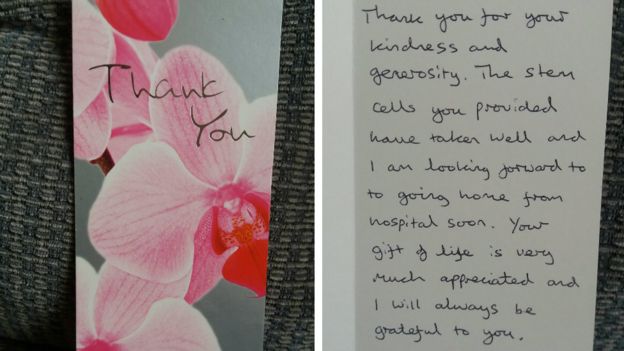 Thank
You
Thank you for your
kindness and
generosity. The stem
cells you provided
have taken well and
I am looking forward to
to going home from
hospital soon. Your
gift of life is very
much appreciated and
I will always be
grateful to you.